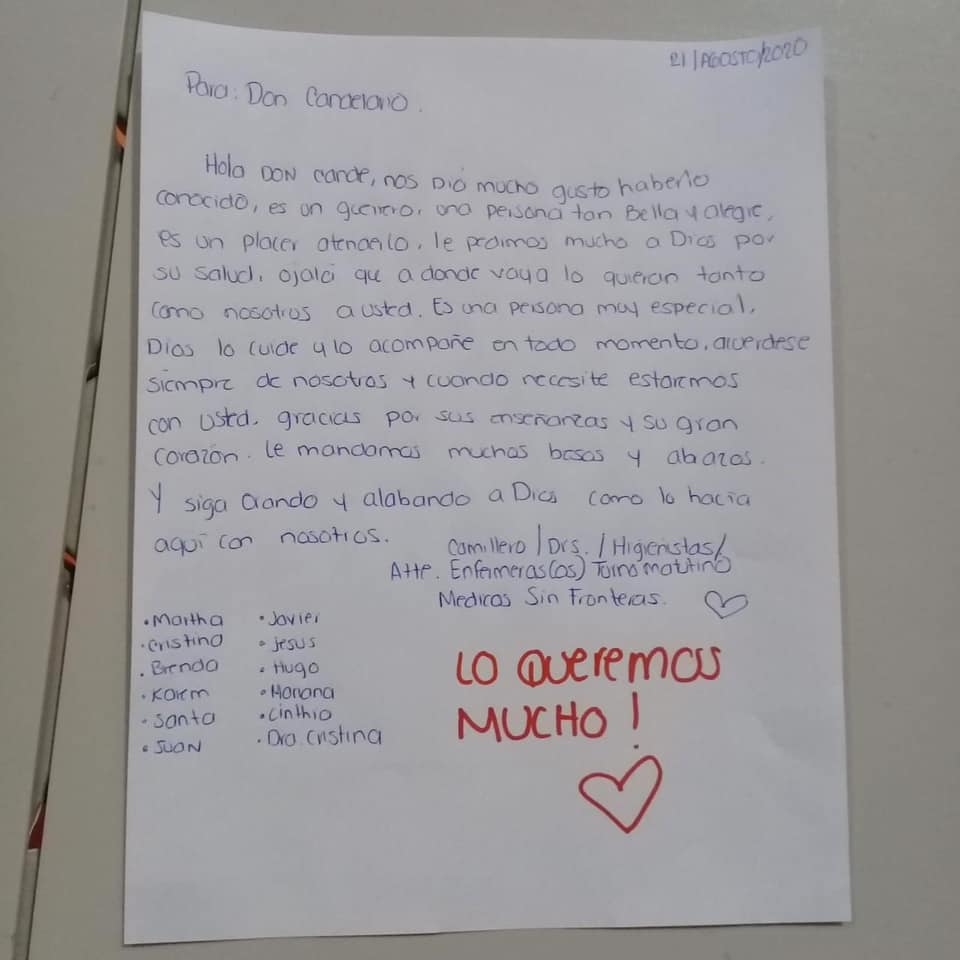 21/AGOSTO/2020
Para: Don Candelario.
Hola DON cande, nos Dió mucho gusto haberlo
conocido, es un guerrero, una persona tan Bella y alegre,
es un placer atenderlo, le pedimos mucho a Dios por
su salud, ojalá que a donde vaya lo quieran tanto
como nosotros a usted. Es una persona muy especial,
Dios lo cuide y lo acompañe en todo momento, acuerdese
siempre de nosotros y cuando necesite estaremos
con usted, gracias por sus enseñanzas y su gran
corazón. le mandamos muchos besos y abazos.
Y siga Orando y alabando a Dios como lo hacía
aquí con nosotros.
Camillero / Drs. / Higienistas/
Atte. Enfermeras(os) Turno matutino
Medicos Sin Fronteras.
• Martha
• Cristina
• Brenda
• Karem
• Santa
• Juan
• Javier
• Jesus
• Hugo
• Mariana
• Cinthia
• Dra. Cristina
LO QUeremos
MUCHO!